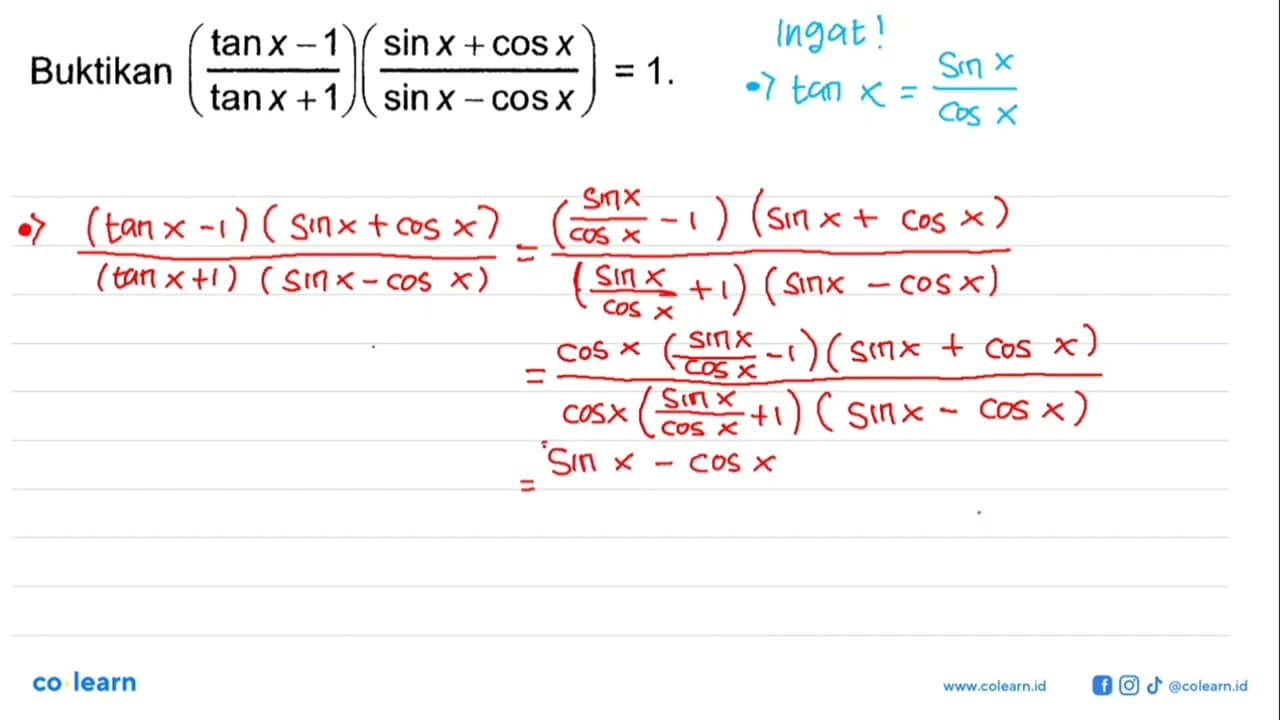 Buktikan ((tan x − 1)/(tan x + 1))((sin x + cos x)/(sin x − cos x)) = 1.
Ingat!
•> tan x = sin x / cos x
•> (tan x − 1)(sin x + cos x) / (tan x + 1)(sin x − cos x) = (sin x / cos x − 1)(sin x + cos x) / (sin x / cos x + 1)(sin x − cos x)
= cos x (sin x / cos x − 1)(sin x + cos x) / cos x (sin x / cos x + 1)(sin x − cos x)
= sin x − cos x
co learn
www.colearn.id
@colearn.id